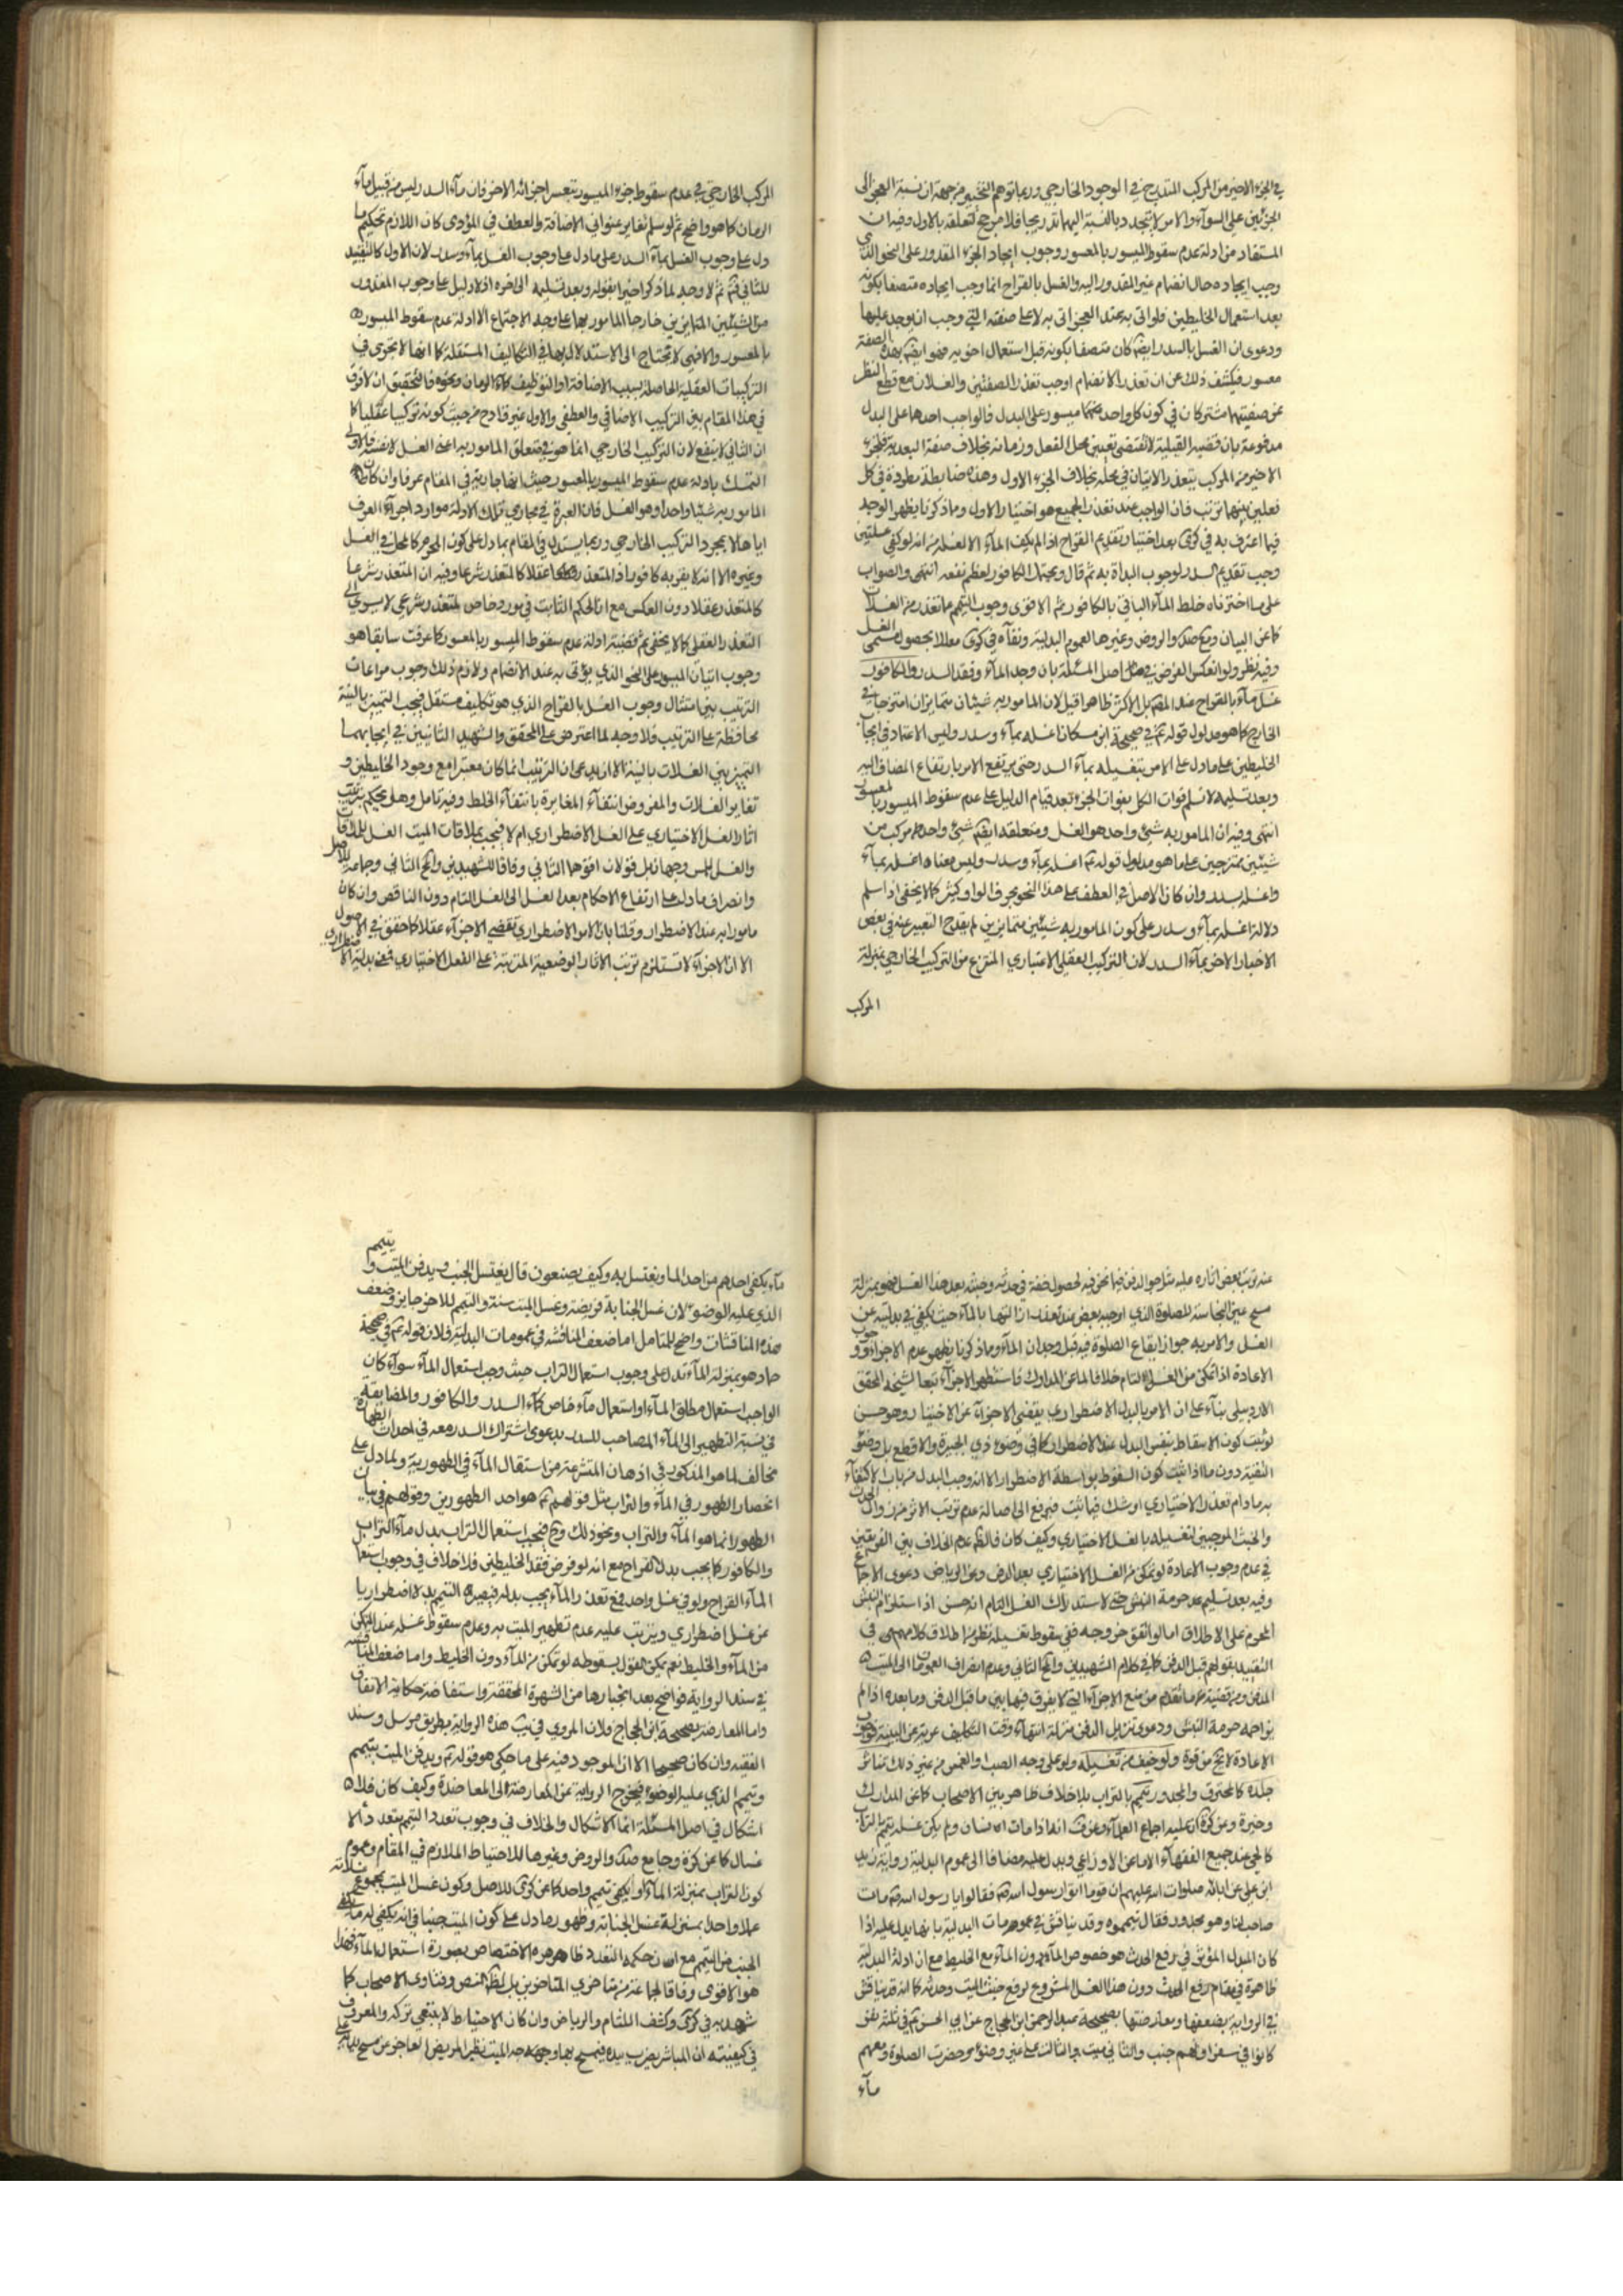 في الجزء الاخير من المركب المتدرج في الوجود الخارجي وربما توهم التخيير من جهة ان نسبة العجز الى
الجزئين على السواء والامر لا يتجدد بالنسبة اليهما تدريجا فلا مرجح لتعلقه بالاول وفيه ان
المستفاد من ادلة عدم سقوط الميسور بالمعسور وجوب ايجاد الجزء المقدور على النحو الذي
وجب ايجاده حال انضمام غير المقدور اليه والغسل بالقراح انما وجب ايجاده متصفا بكونه
بعد استعمال الخليطين فلو اتى به عند العجز اتى به لا على صفته التي وجب ان يوجد عليها
ودعوى ان الغسل بالسدر ايضا كان متصفا بكونه قبل استعمال اخويه فهو ايضا بهذه الصفة
معسور فيكشف ذلك عن ان تعذر الانضمام اوجب تعذر الصفتين والغسلان مع قطع النظر
عن صفتيهما مشتركان في كون كل واحد منهما ميسور على البدل فالواجب احدهما على البدل
مدفوعة بان قضية القبلية لا تقتضي تعيين محل الفعل وزمانه بخلاف صفة البعدية فالجزء
الاخير من المركب يتعذر الاتيان في محله بخلاف الجزء الاول وهذه ضابطة مطردة في كل
فعلين بينهما ترتب فان الواجب عند تعذر الجميع هو اختيار الاول ومما ذكرنا يظهر الوجه
فيما اعترف به في كرى بعد اختياره تقديم القراح اذا لم يكف الماء الا لغسلة من انه لو كفى غسلتين
وجب تقديم السدر لوجوب البداة به ثم قال ويحتمل الكافور لعظم نفعه انتهى والصواب
على ما اخترناه خلط الماء الباقي بالكافور ثم الاقوى وجوب التيمم عما تعذر من الغسلات
كما عن البيان ومع صد والروض وغيرها لعموم البدلية ونفاه في كرى معللا بحصول مسمى الغسل
وفيه نظر ولو انعكس الفرض في اصل المسئلة بان وجد الماء وفقد السدر والكافور
غسل بالقراح عند المض بل الاكثر ظاهرا قيل لان المامور به شيئان متمايزان امتزجا في
الخارج كما هو مدلول قوله ع في صحيحة ابن مسكان اغسله بماء وسدر وليس الاعتماد في ايجاب
الخليطين على ما دل على الامر بتغسيله بماء السدر حتى يرتفع الامر بارتفاع المضاف اليه
وبعد تسليمه لا نسلم فوات الكل بفوات الجزء بعد قيام الدليل على عدم سقوط الميسور بالمعسور
انتهى وفيه ان المامور به شيء واحد هو الغسل ومتعلقه ايضا شيء واحد مركب من
شيئين ممتزجين على ما هو مدلول قوله ع اغسله بماء وسدر وليس معناه اغسله بماء
واغسله بسدر وان كان الاصل في العطف على هذا النحو بحرف الواو كثير كما لا يخفى اذ اسلم
دلالة اغسله بماء وسدر على كون المامور به شيئين متمايزين لم يقدح التعبير عنه في بعض
الاخبار الاخر بماء السدر لان التركيب العقلي الاعتباري المنتزع من التركيب الخارجي بمنزلة
المركب
المركب الخارجي في عدم سقوط جزء الميسور بتعسر اجزائه الاخر فان ماء السدر ليس من قبيل ماء
الرمان كما هو واضح ثم لو سلم تغاير عنواني الاضافة والعطف في المؤدى كان اللازم تحكيم ما
دل على وجوب الغسل بماء السدر على ما دل على وجوب الغسل بماء وسدر لان الاول كالتقييد
للثاني ثم لا وجه لما ذكر اخيرا بقوله وبعد تسليمه الى اخره اذ لا دليل على وجوب المقدور
من الشيئين المتمايزين خارجا المامور بهما على وجه الاجتماع الا ادلة عدم سقوط الميسور
بالمعسور والا فهي لا تحتاج الى الاستدلال بها في التكاليف المستقلة كما انها لا تجرى في
التركيبات العقلية الحاصلة بسبب الاضافة او التوظيف كماء الرمان ونحوه فالتحقيق ان لا فرق
في هذا المقام بين التركيب الاضافي والعطفي والاول غير قادح من حيث كونه تركيبا عقليا كما
ان الثاني لا ينفع لان التركيب الخارجي انما هو في متعلق المامور به اعنى الغسل لا نفسه فالاولى
التمسك بادلة عدم سقوط الميسور بالمعسور حيث انها جارية في المقام عرفا وان كان
المامور به شيئا واحدا وهو الغسل فان العبرة في مجاري تلك الادلة موارد اجراء العرف
اياها لا بمجرد التركيب الخارجي وربما يستدل في المقام بما دل على كون المحرم كالمحل في الغسل
وغيره الا انه لا يقربه كافورا اذ المتعذر عقلا كالمتعذر شرعا وفيه ان المتعذر شرعا
كالمتعذر عقلا دون العكس مع ان الحكم الثابت في مورد خاص لمتعذر شرعي لا يسري الى
التعذر العقلي كما لا يخفى ثم قضية ادلة عدم سقوط الميسور بالمعسور كما عرفت سابقا هو
وجوب اتيان الميسور على النحو الذي يؤتى به عند الانضمام ولازم ذلك وجوب مراعات
الترتيب بين امتثال وجوب الغسل بالقراح الذي هو تكليف مستقل فيجب التميز بالنية
محافظة على الترتيب فلا وجه لما اعترض على المحقق والشهيد الثانيين في ايجابهما
التميز بين الغسلات بالنية الا ان يدعى ان الترتيب انما كان معتبرا مع وجود الخليطين و
تغاير الغسلات والمفروض انتفاء المغايرة بانتفاء الخلط وفيه تامل وهل يحكم بترتب
اثار الغسل الاختياري على الغسل الاضطراري ام لا فيجب بملاقات الميت الغسل للملاقات
والغسل للمس وجهان بل قولان اقواهما الثاني وفاقا للشهيدين والمح الثاني وجماعة للاصل
وانصراف ما دل على ارتفاع الاحكام بعد الغسل الى الغسل التام دون الناقص وان كان
مامورا به عند الاضطرار وقلنا بان الامر الاضطراري تقتضي الاجزاء عقلا كما حقق في الاصول
الا ان الاجزاء لا تستلزم ترتب الاثار الوضعية المترتبة على الفعل الاختياري فمعنى بدلية الاضطراري
عنه ترتب بعض اثاره عليه مثل جواز الدفن فيما نحن فيه لحصول خفة في حدثه وخبثه بعد هذا الغسل فهو بمنزلة
مسح عين النجاسة للصلوة الذي اوجبه بعض عند تعذر ازالتها بالماء حيث يكفي في بدليته عن
الغسل والامر به جواز ايقاع الصلوة فيه قبل وجدان الماء ومما ذكرنا يظهر عدم الاجزاء ووجوب
الاعادة اذا تمكن من الغسل التام خلافا لما عن المدارك فاستظهر الاجزاء تبعا لشيخه المحقق
الاردبيلي بناء على ان الامر بالبدل الاضطراري يقتضي الاجزاء عن الاختيار وهو حسن
لو ثبت كون الاسقاط بنفس البدل عند الاضطرار كما في وضوء ذي الجبيرة والاقطع بل وضوء
التقية دون ما اذا ثبت كون السقوط بواسطة الاضطرار الا انه وجب البدل من باب الاكتفاء
به ما دام تعذر الاختياري او شك فيما ثبت فيرجع الى اصالة عدم ترتب الاثر من زوال الحدث
والخبث الموجبين لتغسيله بالغسل الاختياري وكيف كان فالظ عدم الخلاف بين الفريقين
في عدم وجوب الاعادة لو تمكن من الغسل الاختياري بعد الدفن وعن الرياض دعوى الاجماع
وفيه بعد تسليم عدم حرمة النبش حتى لاستدراك الغسل التام انه حسن اذا استلزام النبش
المحرم على الاطلاق اما لو اتفق خروجه ففي سقوط تغسيله نظر من اطلاق كلامهم في
التقييد بقولهم قبل الدفن كما في كلام الشهيدين والمح الثاني وعدم انصراف العمومات الى الميت
المدفون ومن قضية ما تقدم من منع الاجزاء التي لا يفرق فيها بين ما قبل الدفن وما بعده اذا لم
يزاحمه حرمة النبش ودعوى تنزيل الدفن منزلة انتهاء وقت التكليف عرية عن البينة فوجوب
الاعادة لا يخ من قوة ولو خيف من تغسيله ولو على وجه الصب والغمس من غير ذلك تناثر
جلده كالمحترق والمجدور يتيمم بالتراب بلا خلاف ظاهر بين الاصحاب كما عن المدارك
وخيرة وعن كرة ان عليه اجماع العلماء وعن ف انه اذا مات انسان ولم يكن غسله يتيمم بالتراب
كالحي عند جميع الفقهاء الا ما عن الاوزاعي ويدل عليه مضافا الى عموم البدلية رواية زيد
ابن علي عن ابائه صلوات الله عليهم ان قوما اتوا رسول الله ص فقالوا يا رسول الله ص مات
صاحب لنا وهو مجدور فقال تيمموه وقد يناقش في عمومات البدلية بانها يدل عليه اذا
كان المبدل المؤثر في رفع الحدث هو خصوص الماء دون الماء مع الخليط مع ان ادلة البدلية
ظاهرة في مقام رفع الحدث دون هذا الغسل المشروع لرفع خبث الميت وحدثه كما انه قد يناقش
في الرواية بضعفها ومعارضتها بصحيحة عبد الرحمن ابن الحجاج عن ابي الحسن ع في ثلثة نفر
كانوا في سفر احدهم جنب والثاني ميت والثالث على غير وضوء وحضرت الصلوة ومعهم
ماء
ماء يكفي احدهم من احد الماء ويغتسل به وكيف يصنعون قال يغتسل الجنب ويدفن الميت ويتيمم
الذي عليه الوضوء لان غسل الجنابة فريضة وغسل الميت سنة والتيمم للاخر جايز وضعف
هذه المناقشات واضح للمتامل اما ضعف المناقشة في عمومات البدلية فلان قوله ع في صحيحة
حماد هو بمنزلة الماء تدل على وجوب استعمال التراب حيث وجب استعمال الماء سواء كان
الواجب استعمال مطلق الماء او استعمال ماء خاص كماء السدر والكافور والمضايقة
في نسبة التطهير الى الماء المصاحب للسدر بدعوى اشتراك السدر معه في احداث الطهارة
مخالف لما هو المذكور في اذهان المتشرعة من استقلال الماء في الطهورية ولما دل على
انحصار الطهور في الماء والتراب مثل قولهم ع هو احد الطهورين وقولهم في بيان
الطهور انما هو الماء والتراب ونحو ذلك وح فيجب استعمال التراب بدل ماء التراب
والكافور كما يجب بدل القراح مع انه لو فرض فقد الخليطين فلا خلاف في وجوب استعمال
الماء القراح ولو في غسل واحد فمع تعذر الماء يجب بدله فيصير التيمم بدلا اضطراريا
عن غسل اضطراري ويترتب عليه عدم تطهير الميت به وعدم سقوط غسله عند التمكن
من الماء والخليط نعم يمكن القول بسقوطه لو تمكن من الماء دون الخليط واما ضعف المناقشة
في سند الرواية فواضح بعد انجبارها من الشهرة المحققة واستفاضة حكاية الاتفاق
واما المعارضة بصحيحة ابن الحجاج فلان المروي في يب هذه الرواية بطريق مرسل وسند
الفقيه وان كان صحيحا الا ان الموجود فيه على ما حكي هو قوله ع ويدفن الميت بتيمم
ويتيمم الذي عليه الوضوء فيخرج الرواية عن المعارضة الى المعاضدة وكيف كان فلا
اشكال في اصل المسئلة انما الاشكال والخلاف في وجوب تعدد التيمم بتعدد الا
غسال كما عن كرة وجامع صد والروض وغيرها للاحتياط الملازم في المقام وعموم
كون التراب بمنزلة الماء او يكفي تيمم واحد كما عن كرى للاصل وكون غسل الميت بمجموع ثلاثة
عملا واحدا بمنزلة غسل الجنابة وظهور ما دل على كون الميت جنبا في انه يكفي له ما يكفي
الجنب من التيمم مع ان حكمة التعدد ظاهرة الاختصاص بصورة استعمال الماء فهذا
هو الاقوى وفاقا لجماعة من متاخري المتاخرين بل لظاهر النص وفتاوى الاصحاب كما
شهد به في كرى وكشف اللثام والرياض وان كان الاحتياط لا ينبغي تركه والمعروف
في كيفيته ان المباشر يضرب بيده فيمسح بها وجهه ويد الميت نظير المريض العاجز عن مسح بدنه على